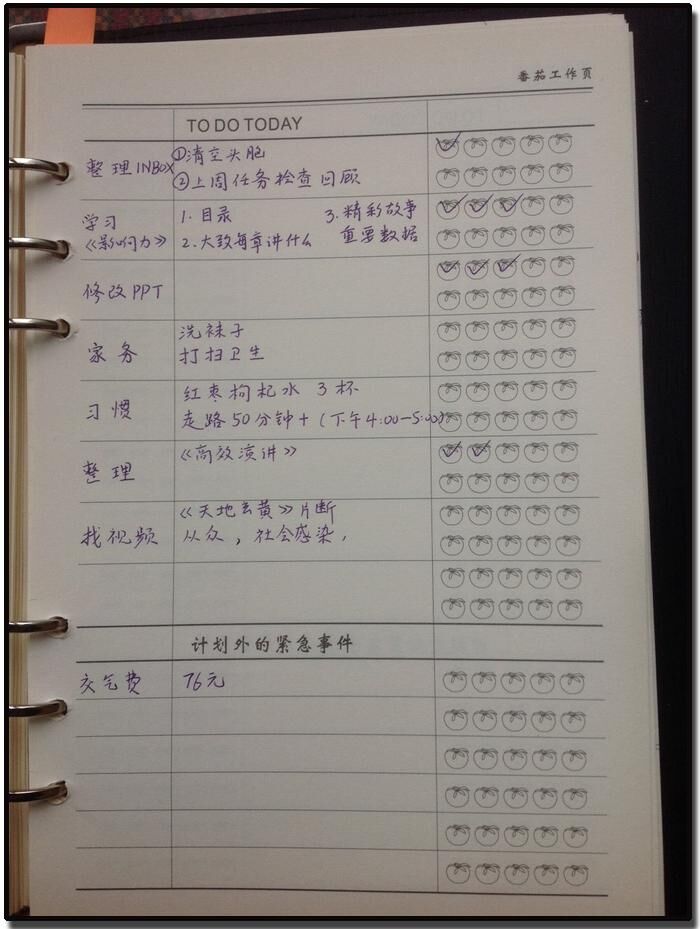 番茄工作页
TO DO TODAY
整理INBOX ①清空头脑
②上周任务检查回顾
学习 1. 目录 3. 精彩故事
《影响力》 2. 大致每章讲什么 重要数据
修改PPT
家务 洗袜子
打扫卫生
习惯 红枣枸杞水 3杯
走路50分钟+(下午4:00-5:00)
整理 《高效演讲》
找视频 《天地玄黄》片断
从众,社会感染,
计划外的紧急事件
交气费 76元